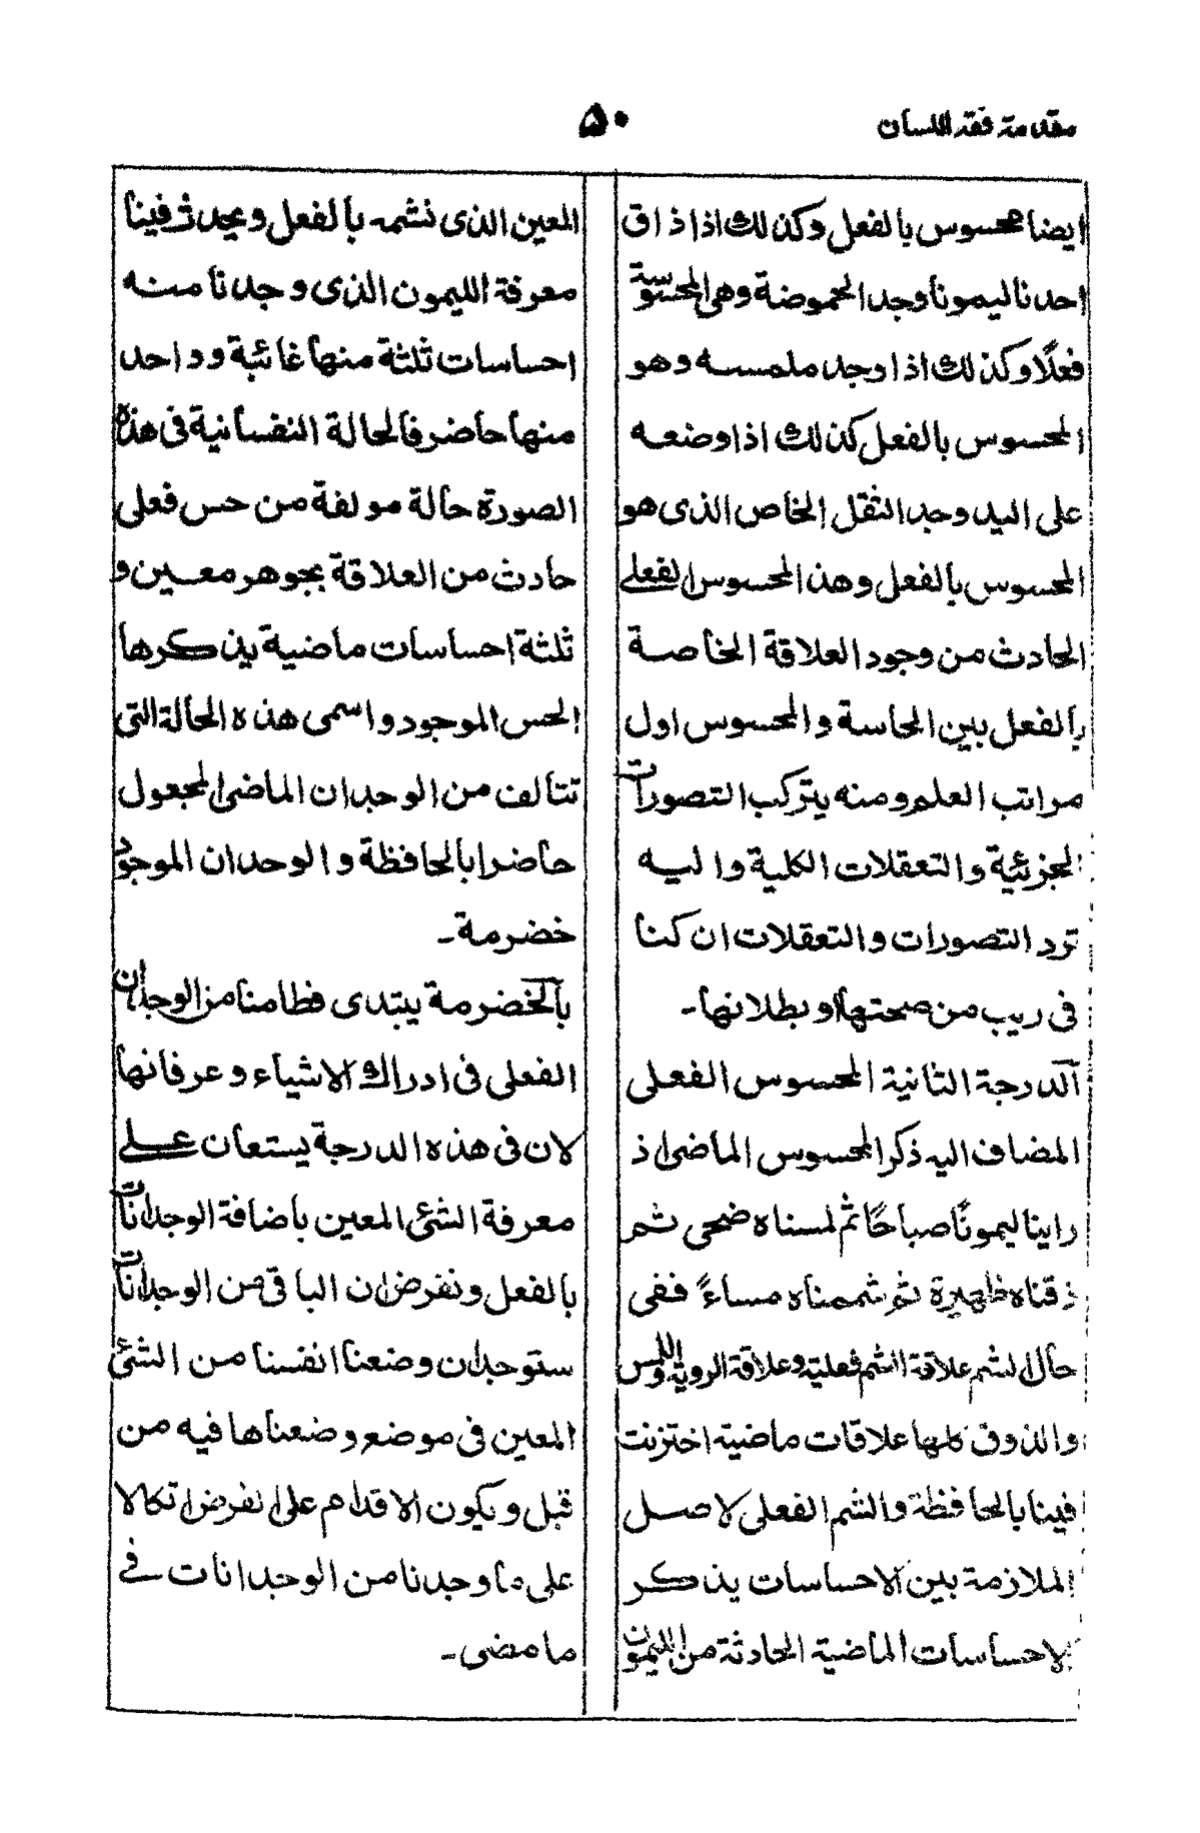 مقدمة فقه اللسان
۵۰
ايضا محسوس بالفعل وكذلك اذا ذاق
احدنا ليمونا وجد الحموضة وهى المحسوسة
فعلًا وكذلك اذا وجد ملمسه وهو
المحسوس بالفعل كذلك اذا وضعه
على اليد وجد الثقل الخاص الذى هو
المحسوس بالفعل وهذا المحسوس الفعلى
الحادث من وجود العلاقة الخاصة
بالفعل بين الحاسة والمحسوس اول
مراتب العلم ومنه يتركب التصورات
الجزئية والتعقلات الكلية واليه
ترد التصورات والتعقلات ان كنا
فى ريب من صحتها او بطلانها۔
آلدرجة الثانية المحسوس الفعلى
المضاف اليه ذكر المحسوس الماضى اذ
راينا ليمونًا صباحًا ثم لمسناه ضحى ثم
ذقناه ظهيرة ثم شممناه مساءً ففى
حال الشم علاقة الشم فعلية وعلاقة الروية واللمس
والذوق كلها علاقات ماضية اختزنت
فينا بالحافظة والشم الفعلى لاصل
الملازمة بين الاحساسات يذكر
الاحساسات الماضية الحادثة من الليمون
المعين الذى نشمه بالفعل ويحدث فينا
معرفة الليمون الذى وجدنا منه
احساسات ثلثة منها غائبة وواحد
منها حاضر فالحالة النفسانية فى هذه
الصورة حالة مولفة من حس فعلى
حادث من العلاقة بجوهر معين و
ثلثة احساسات ماضية يذكرها
الحس الموجود واسمى هذه الحالة التى
تتالف من الوجدان الماضى المجعول
حاضرا بالحافظة والوجدان الموجود
خضرمة۔
بآلخضرمة يبتدى فطامنا من الوجدان
الفعلى فى ادراك الاشياء وعرفانها
لان فى هذه الدرجة يستعان على
معرفة الشئ المعين باضافة الوجدانات
بالفعل ونفرض ان الباقى من الوجدانات
ستوجد ان وضعنا انفسنا من الشئ
المعين فى موضع وضعناها فيه من
قبل ويكون الاقدام على الفرض اتكالا
على ما وجدنا من الوجدانات فى
ما مضى۔